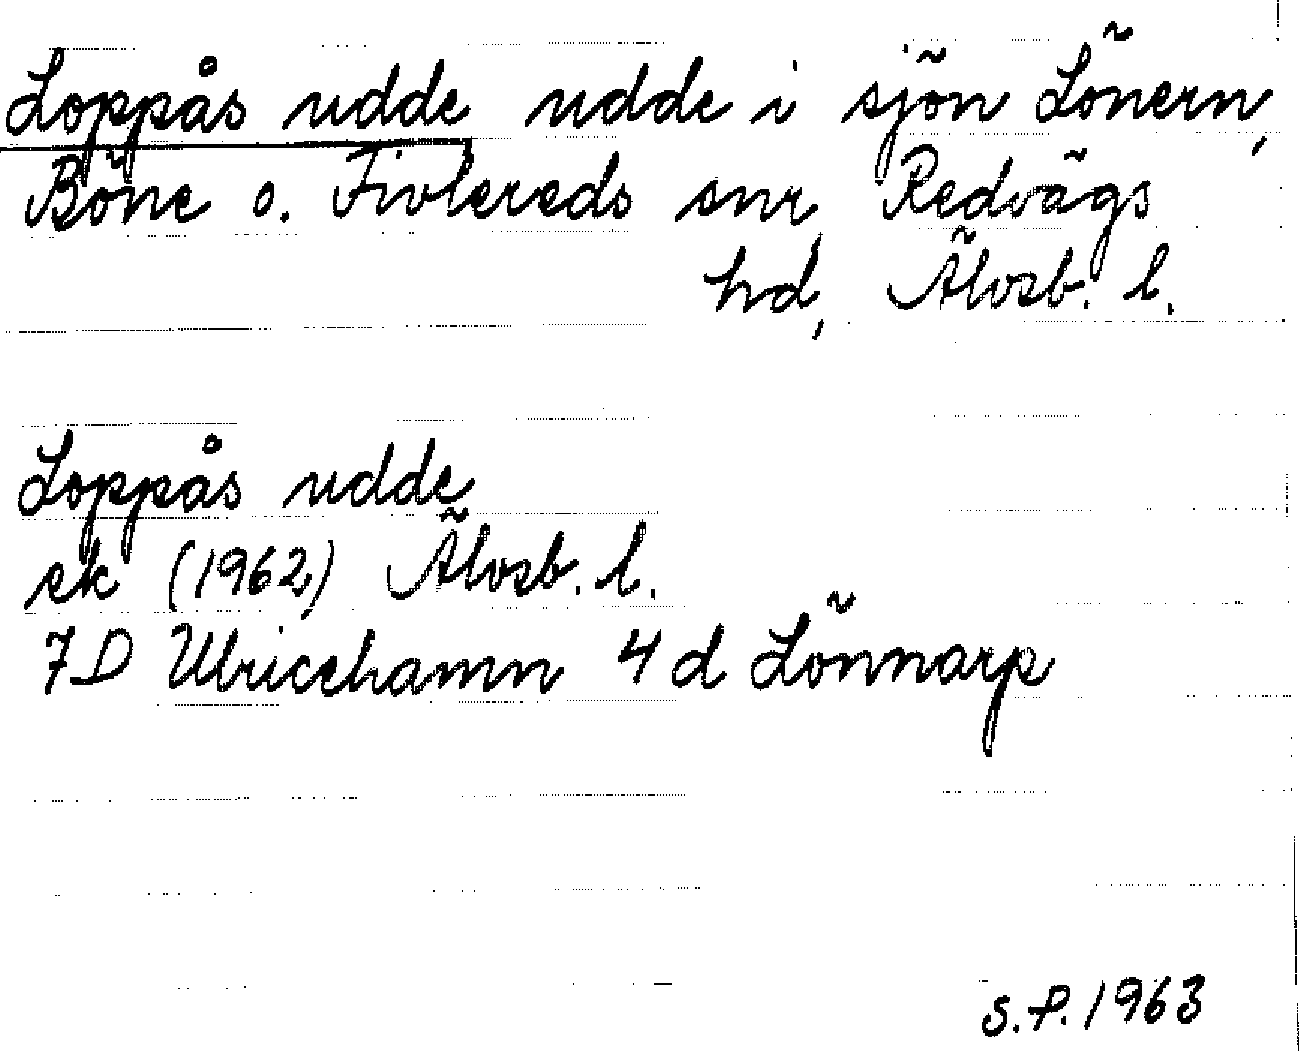 Loppås udde udde i sjön Lönern,
Böne o. Fivlereds snr, Redvägs
hd, Älvsb. l.
Loppås udde
ek (1962) Älvsb. l.
7D Ulricehamn 4d Lönnarp
S.P. 1963